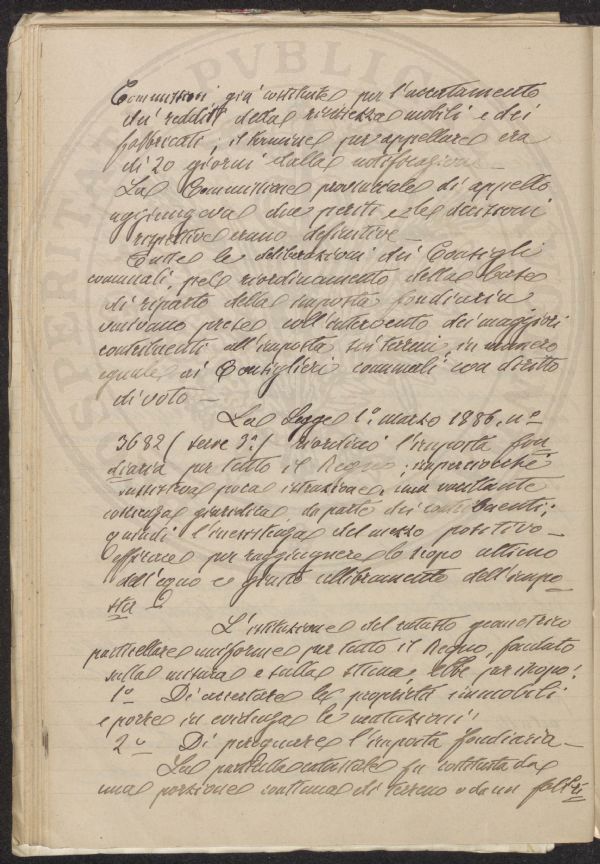 Commissioni già costituite per l'accertamento
dei redditi della ricchezza mobili e dei
fabbricati; il termine per appellare era
di 20 giorni dalla notificazione —
La Commissione provinciale di appello
aggiungeva due periti e le decisioni
rispettive erano definitive —
Tutte le deliberazioni dei Consigli
comunali, pel riordinamento della base
di riparto della imposta fondiaria
venivano prese coll'intervento dei maggiori
contribuenti all'imposta sui terreni, in numero
eguale ai Consiglieri comunali con diritto
di voto —
La Legge 1º marzo 1886, nº
3682 (serie 3ª) riordinò l'imposta fon
diaria per tutto il Regno; imperciocchè
sussisteva poca istruzione, una
giuridica da parte dei contribuenti;
quindi l'inesistenza del mezzo positivo —
efficace per raggiungere lo scopo ultimo
dell'equo e giusto allibramento dell'impo=
sta
L'istituzione del catasto geometrico
particellare uniforme per tutto il Regno, fondato
sulla misura e sulla stima ebbe per iscopo:
1º Di accertare le proprietà immobili
e porre in evidenza le mutazioni;
2º Di perequare l'imposta fondiaria —
La particella catastale fu costituita da
una porzione continua di terreno o da un fabbri